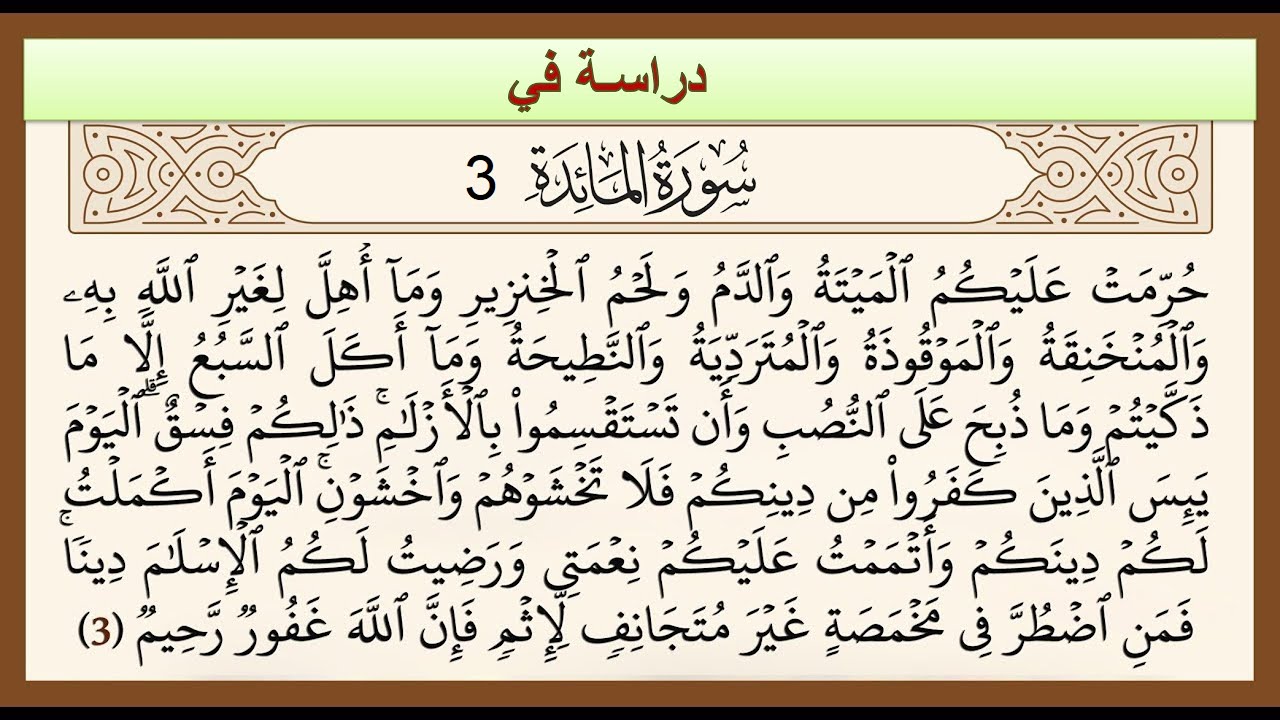 دراسة في
سُورَةُ المَائِدَةِ 3
حُرِّمَتْ عَلَيْكُمُ ٱلْمَيْتَةُ وَٱلدَّمُ وَلَحْمُ ٱلْخِنزِيرِ وَمَآ أُهِلَّ لِغَيْرِ ٱللَّهِ بِهِۦ
وَٱلْمُنْخَنِقَةُ وَٱلْمَوْقُوذَةُ وَٱلْمُتَرَدِّيَةُ وَٱلنَّطِيحَةُ وَمَآ أَكَلَ ٱلسَّبُعُ إِلَّا مَا
ذَكَّيْتُمْ وَمَا ذُبِحَ عَلَى ٱلنُّصُبِ وَأَن تَسْتَقْسِمُوا۟ بِٱلْأَزْلَـٰمِ ۚ ذَٰلِكُمْ فِسْقٌ ۗ ٱلْيَوْمَ
يَئِسَ ٱلَّذِينَ كَفَرُوا۟ مِن دِينِكُمْ فَلَا تَخْشَوْهُمْ وَٱخْشَوْنِ ۚ ٱلْيَوْمَ أَكْمَلْتُ
لَكُمْ دِينَكُمْ وَأَتْمَمْتُ عَلَيْكُمْ نِعْمَتِى وَرَضِيتُ لَكُمُ ٱلْإِسْلَـٰمَ دِينًا ۚ
فَمَنِ ٱضْطُرَّ فِى مَخْمَصَةٍ غَيْرَ مُتَجَانِفٍ لِّإِثْمٍ فَإِنَّ ٱللَّهَ غَفُورٌ رَّحِيمٌ (3)